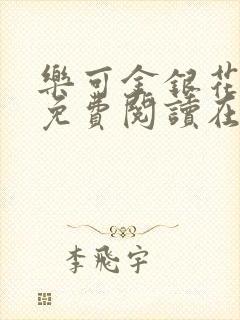 樂可金銀花
免費閱讀在
李飛宇